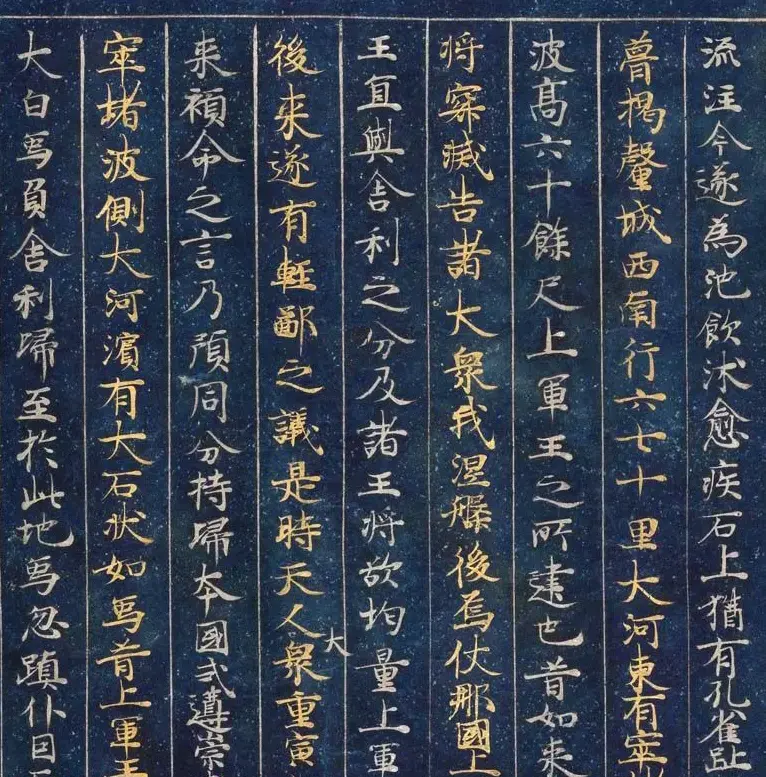 流注今遂為池飲沐愈疾石上猶有孔雀趾
瞢揭釐城西南行六七十里大河東有窣
波高六十餘尺上軍王之所建也昔如来
将寂滅告諸大衆我涅槃後烏仗那國上
王宜與舍利之分及諸王将欲均量上軍
後来遂有輕鄙之議是時天人大衆重宣
来顧命之言乃預同分持歸本國式遵崇
窣堵波側大河濱有大石狀如象昔上軍王
大白象負舍利歸至於此地象忽蹎仆因